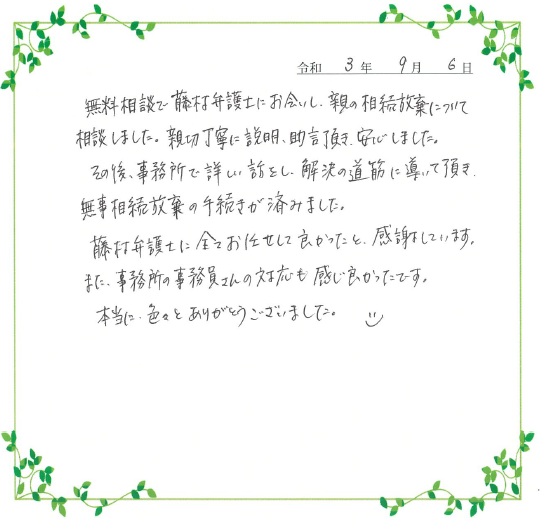 令和 3年 9月 6日
無料相談で藤村弁護士にお会いし、親の相続放棄について
相談しました。親切丁寧に説明、助言頂き、安心しました。
その後、事務所で詳しい話をし、解決の道筋に導いて頂き、
無事相続放棄の手続きが済みました。
藤村弁護士に全てお任せして良かったと、感謝しています。
また、事務所の事務員さんの対応も感じ良かったです。
本当に、色々とありがとうございました。